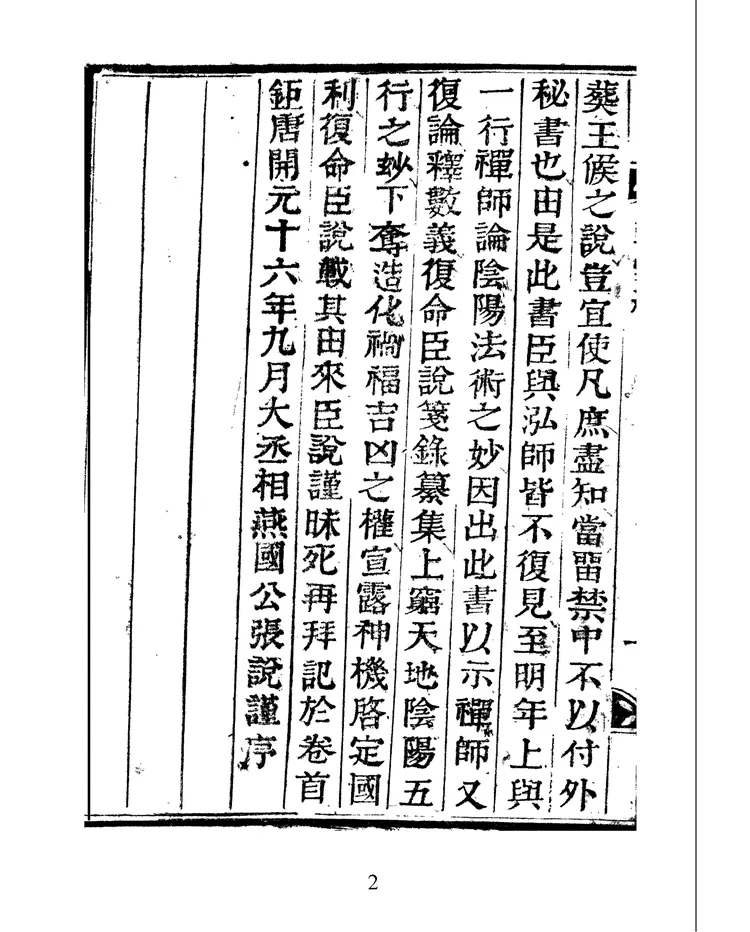 葬王候之說豈宜使凡庶盡知當畱禁中不以付外
秘書也由是此書臣與泓師皆不復見至明年上與
一行禪師論陰陽法術之妙因出此書以示禪師又
復論釋數義復命臣說箋錄纂集上窮天地陰陽五
行之妙下奪造化禍福吉凶之權宣露神機啓定國
利復命臣說載其由來臣說謹昧死再拜記於卷首
鉅唐開元十六年九月大丞相燕國公張說謹序
2